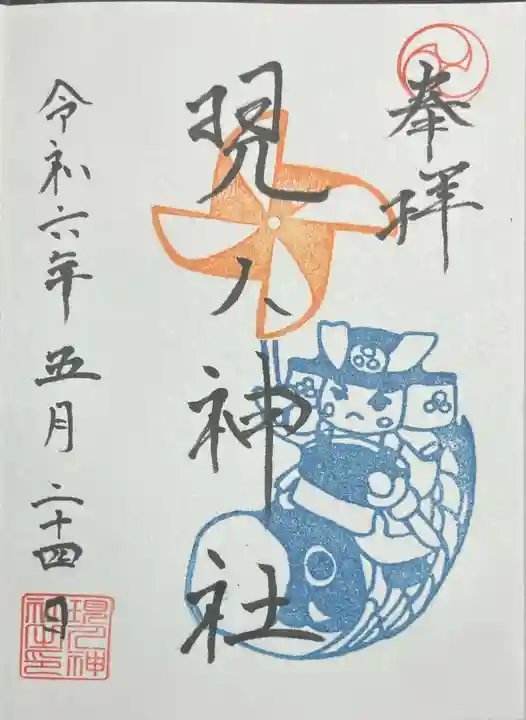 奉拝
現人神社
令和六年五月二十四日
現人神社之印